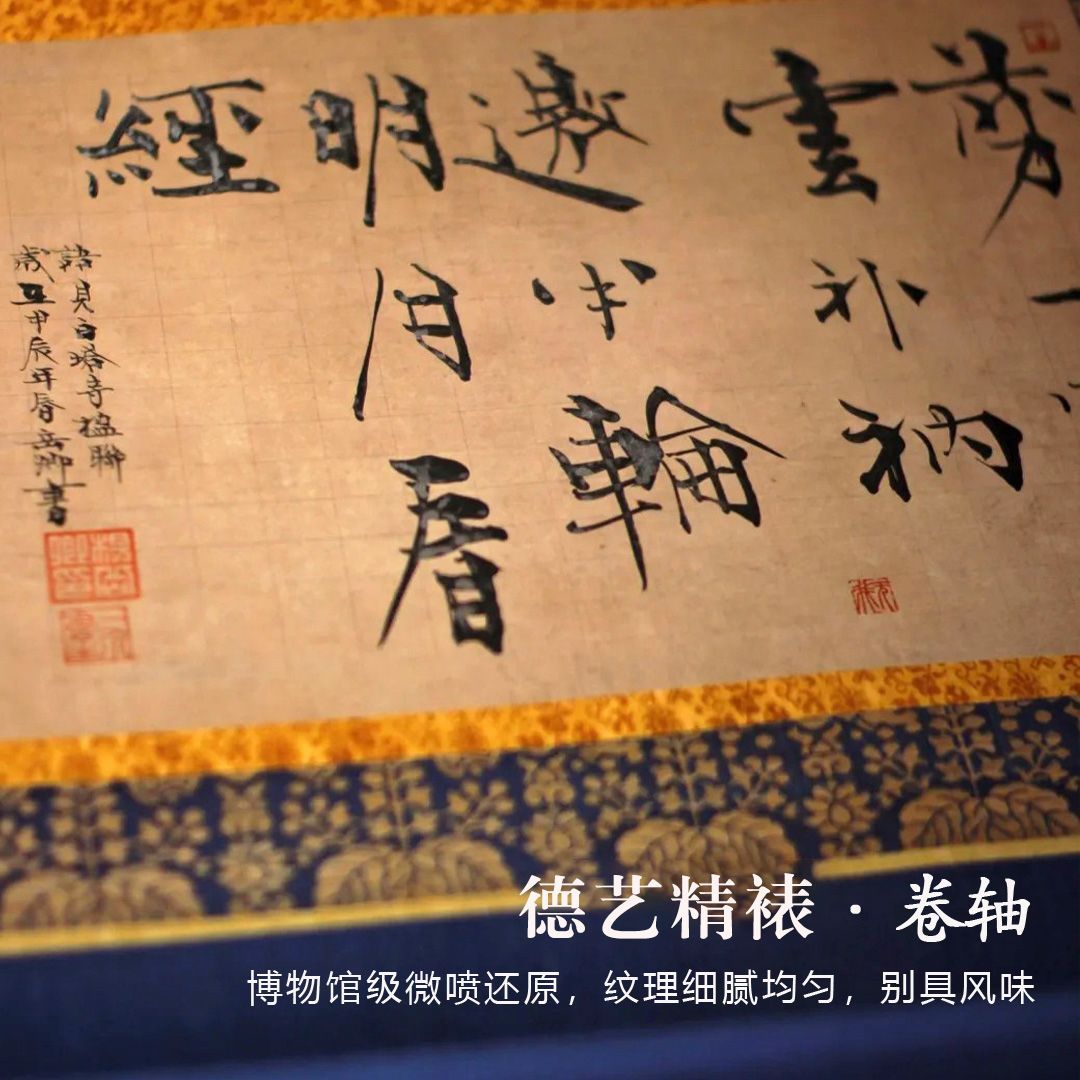 剪一
雲补衲
邀半輪
明月看
經
白塔寺楹聯
歲在甲辰年春岳卿書
德艺精裱·卷轴
博物馆级微喷还原，纹理细腻均匀，别具风味